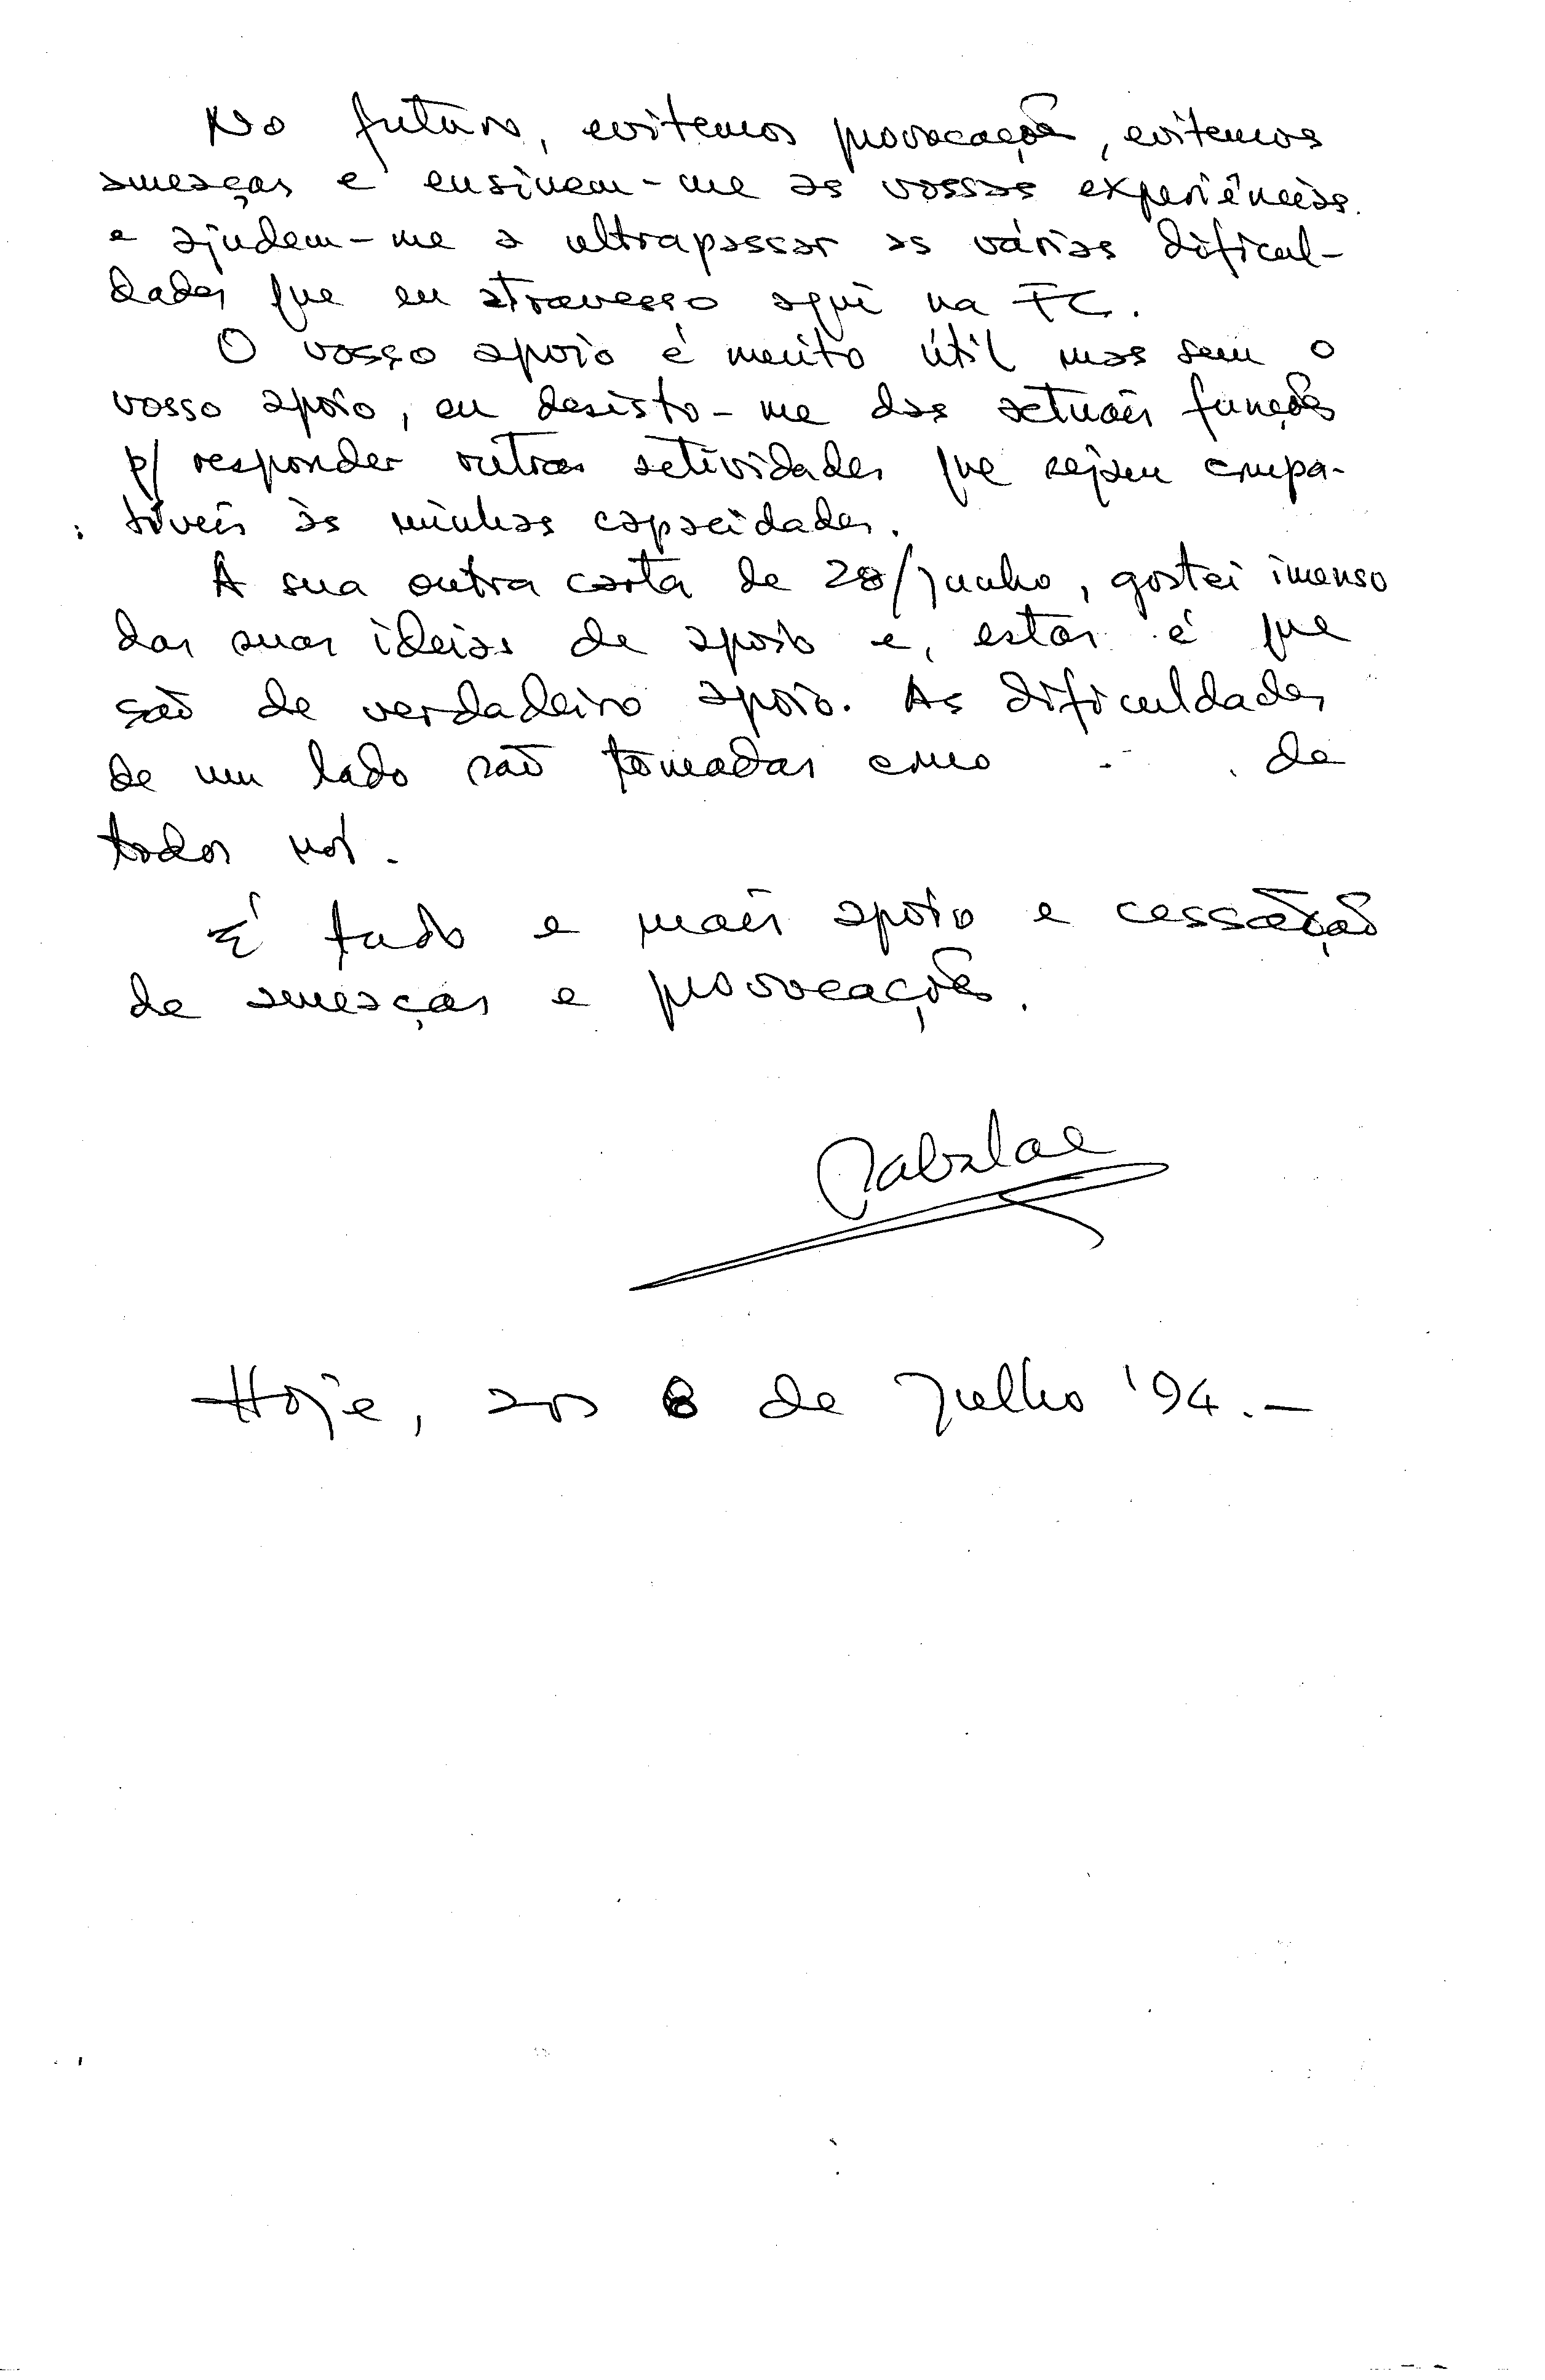 No futuro, evitemos provocações, evitemos
ameaças e ensinem-me as vossas experiências.
e ajudem-me a ultrapassar as várias dificul-
dades que eu atravesso aqui na FC.
O vosso apoio é muito útil mas sem o
vosso apoio, eu desisto-me das actuais funções
p/ responder outras actividades que sejam compa-
tíveis às minhas capacidades.
A sua outra carta de 28/Junho, gostei imenso
das suas ideias de apoio e, estas é que
são de verdadeiro apoio. As dificuldades
de um lado são tomadas como de
todos nós.
É tudo e mais apoio e cessação
de ameaças e provocações.
Hoje, aos 8 de Julho '94.-